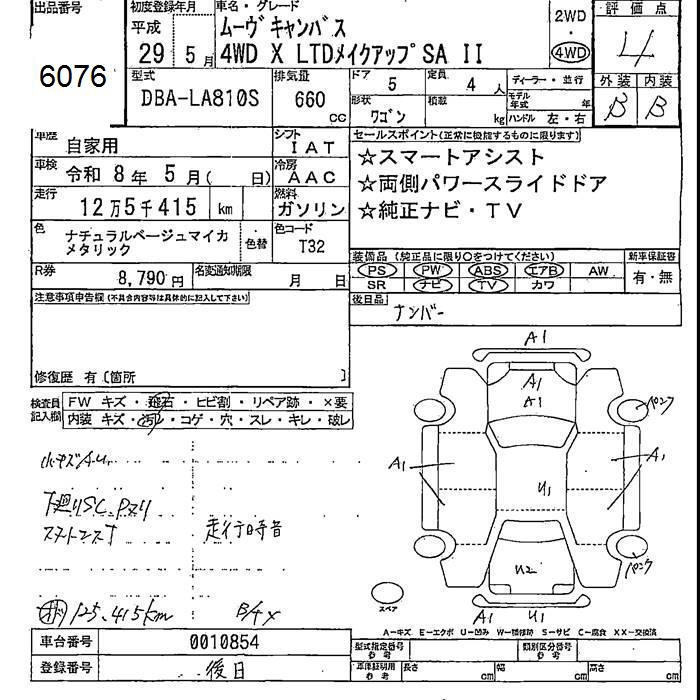 出品番号
6076
初度登録年月
平成
29 5月
車名・グレード
ムーヴキャンバス
4WD X LTDメイクアップSA II
2WD
・
4WD
評価点
4
外装 内装
B B
型式
DBA-LA810S
排気量
660
cc
ドア
5
定員
4人
形状
ワゴン
積載
kg
ディーラー・並行
モデル年式 年
ハンドル 左・右
車歴
自家用
シフト
IAT
車検
令和 8年 5月( 日)
冷房
AAC
走行
12万5千415 km
燃料
ガソリン
色
ナチュラルベージュマイカ
メタリック
・色替
色コード
T32
R券
8,790円
名変通知期限
月 日
セールスポイント(正常に機能するものに限ります)
☆スマートアシスト
☆両側パワースライドドア
☆純正ナビ・TV
装備品 (純正品に限り○をつけてください)
新車保証書
PS PW ABS エアB AW
有・無
SR ナビ TV カワ
後日品
ナンバー
注意事項申告欄(不具合内容等は具体的に記入して下さい)
修復歴 有〔箇所 〕
検査員記入欄
FW キズ・飛石・ヒビ割・リペア跡・×要
内装 キズ・汚レ・コゲ・穴・スレ・キレ・破レ
小キズAu
下廻りSC.Pスリ
走行時音
125,415km
A1
A1
A1
パンク
A1
A1
U1
U2
パンク
スペア
A1 U1
A−キズ E−エクボ U−凹み W−補修跡 S−サビ C−腐食 XX−交換済
車台番号
0010854
登録番号
後日
型式指定番号
参考
類別区分番号
参考
車庫証明用
参考
長さ cm
幅 cm
高さ cm